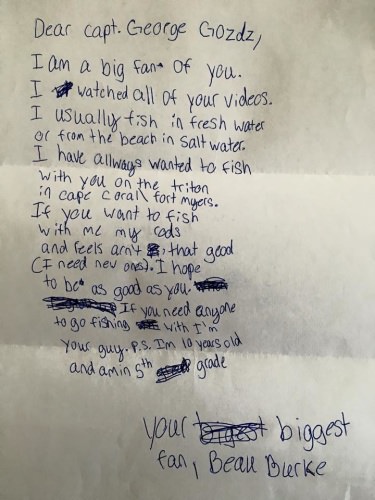 Dear capt. George Gozdz,
I am a big fan of you.
I watched all of your videos.
I usually fish in fresh water
or from the beach in salt water.
I have allways wanted to fish
with you on the triton
in cape coral fort myers.
If you want to fish
with me my rods
and feels arn't that good
(I need new ones). I hope
to be as good as you.
If you need anyone
to go fishing with I'm
your guy. P.S. I'm 10 years old
and am in 5th grade
your biggest
fan, Beau Burke